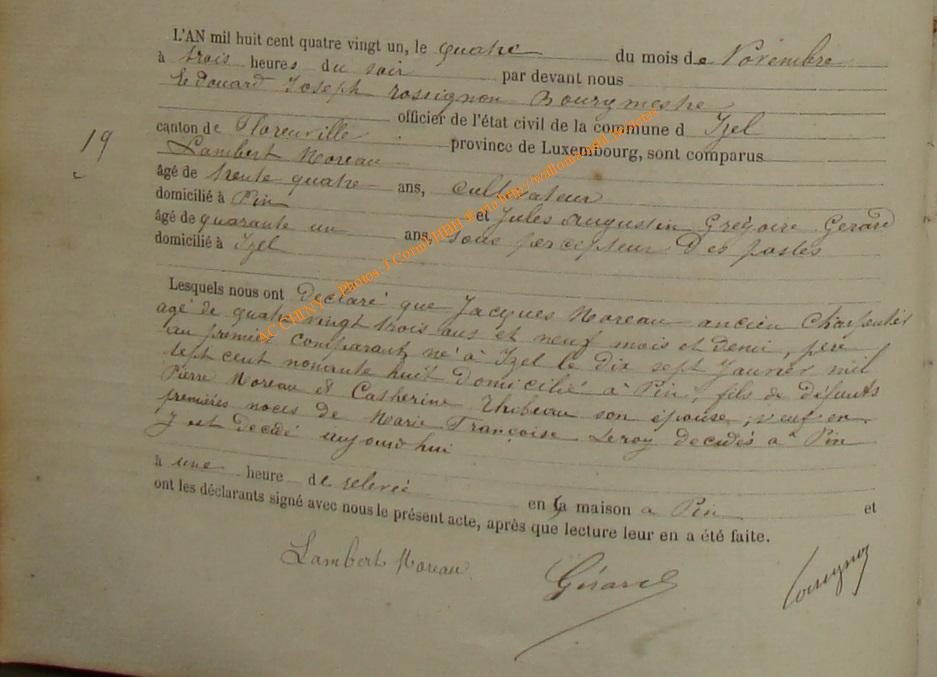 L'AN mil huit cent quatre vingt un, le quatre du mois de Novembre
à trois heures du soir par devant nous
Edouard Joseph rossignon Bourgmestre
officier de l'état civil de la commune d Izel
canton de Florenville province de Luxembourg, sont comparus
19
Lambert Moreau
âgé de trente quatre ans, cultivateur
domicilié à Pin et Jules Augustin Grégoire Gerard
âgé de quarante un ans, sous percepteur des postes
domicilié à Izel
Lesquels nous ont déclaré que Jacques Moreau ancien Charpentier
agé de quatre vingt trois ans et neuf mois et demi, père
au premier comparant, né à Izel le dix sept Janvier mil
sept cent nonante huit domicilié à Pin, fils de défunts
Pierre Moreau & Catherine Thibeau son épouse, veuf en
premières noces de Marie Françoise Leroy decédés à Pin
y est decédé aujourd'hui
à une heure de relevée en sa maison a Pin et
ont les déclarants signé avec nous le présent acte, après que lecture leur en a été faite.
Lambert Moreau Gérard rossignon
AC CHINY - Photos J Cornil HBH @ arta http://wallonia